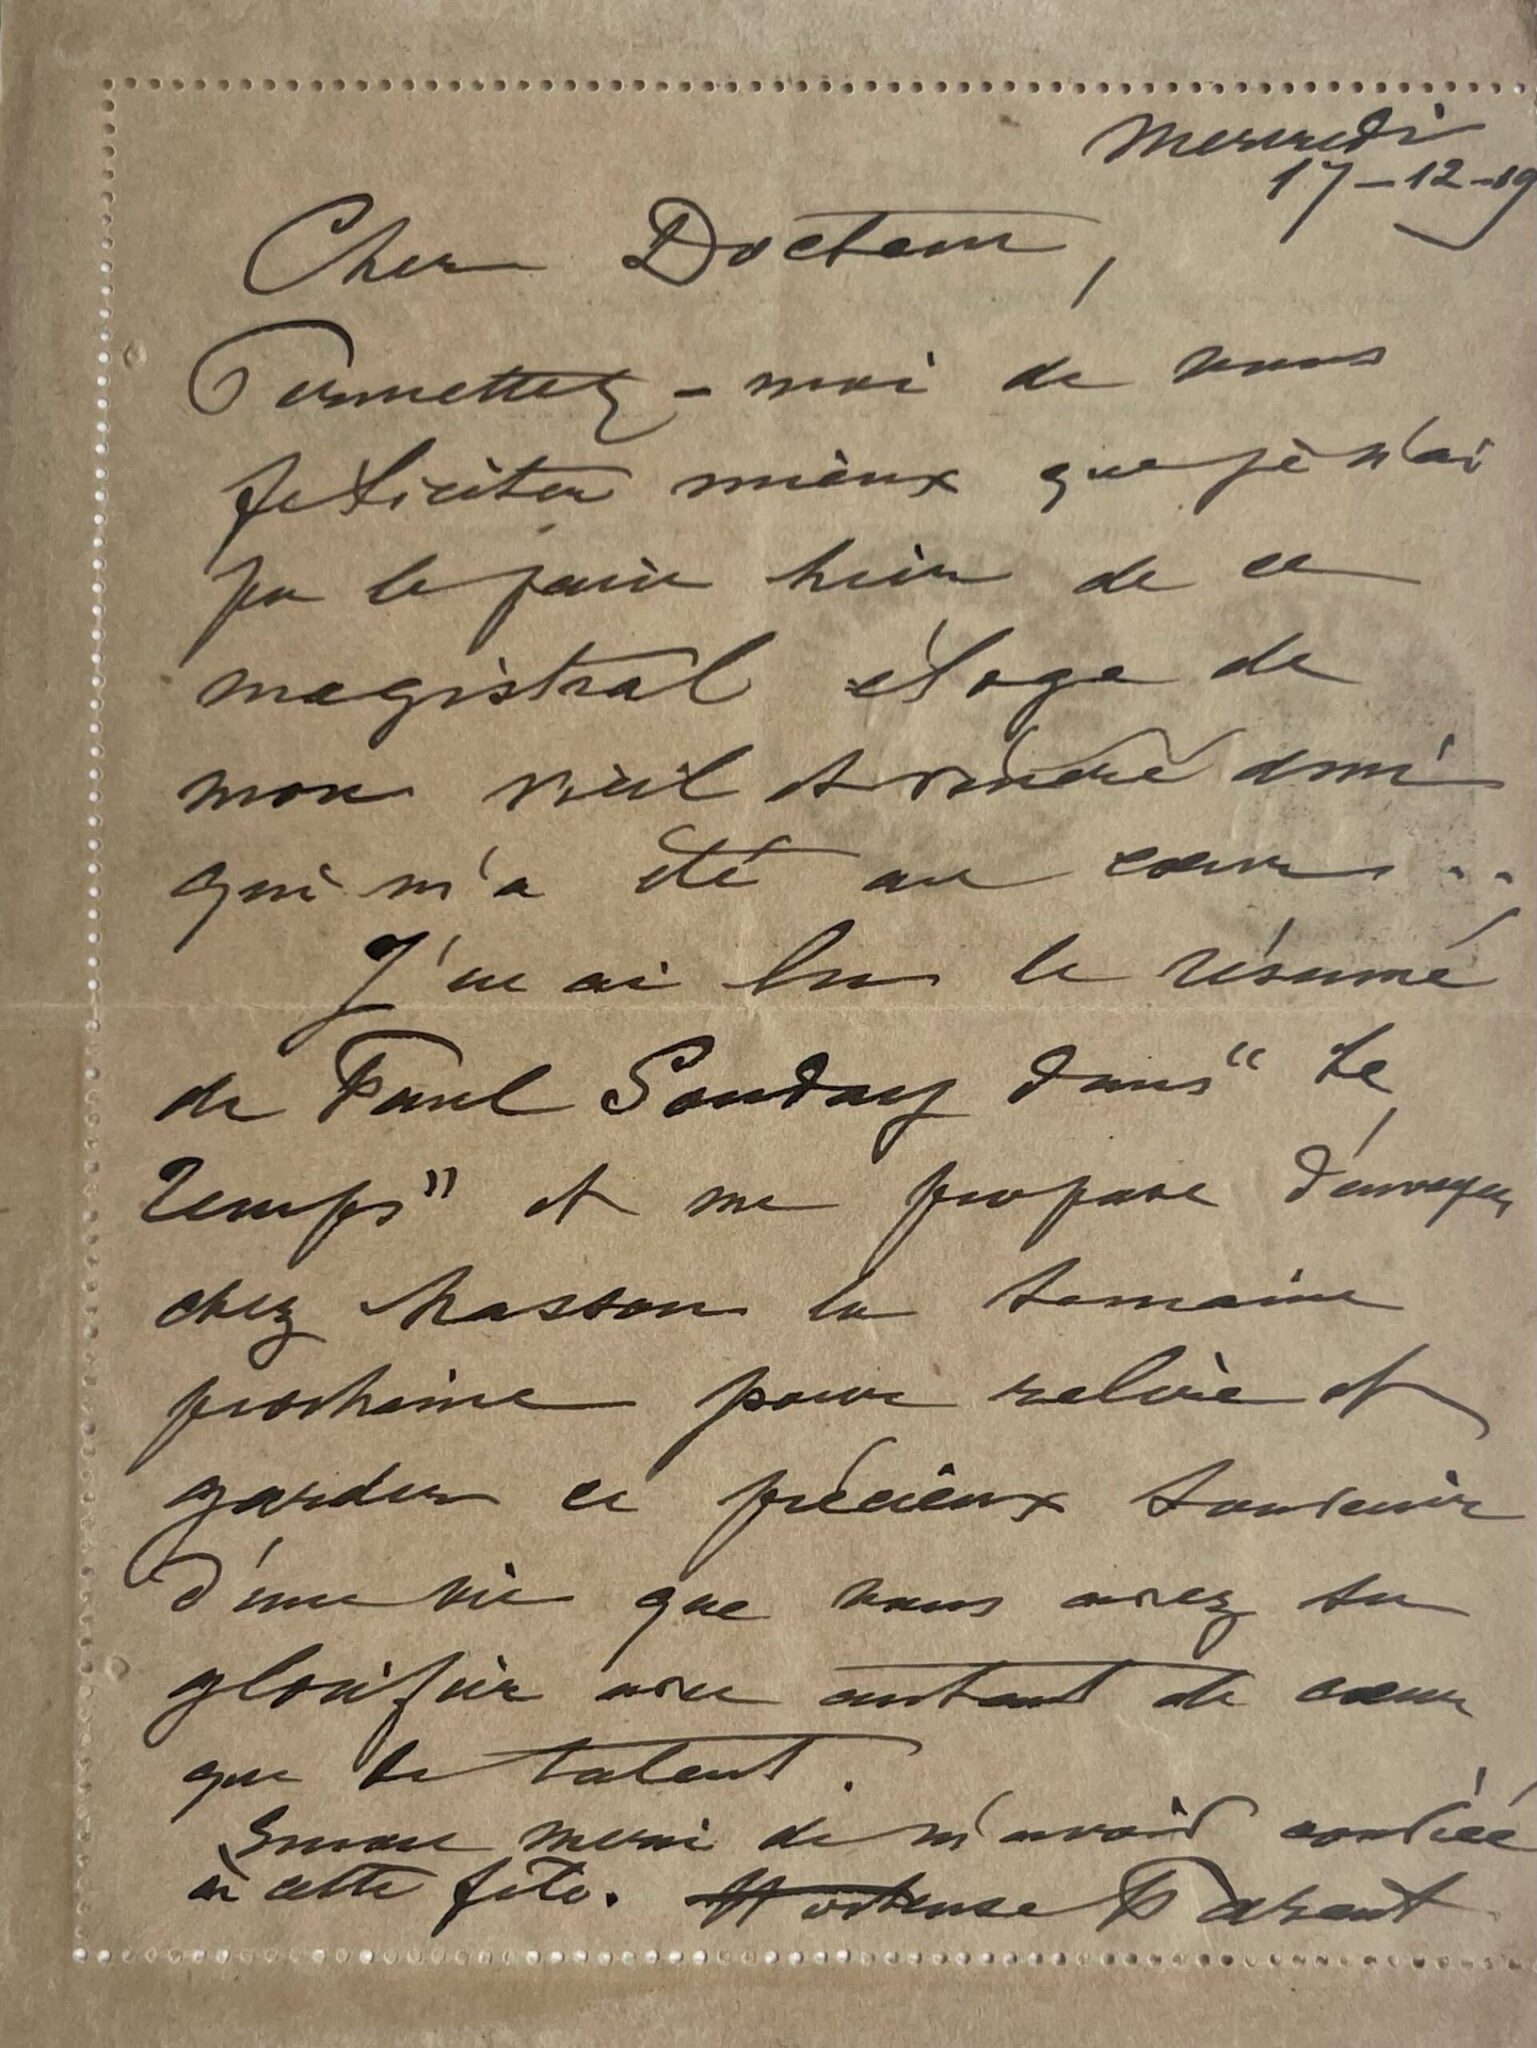 Mercredi
17-12-19
Cher Docteur,
Permettez-moi de vous
féliciter mieux que je n'ai
pu le faire hier de ce
magistral éloge de
mon vieil et vénéré ami
qui m'a été au cœur...
J'en ai lu le résumé
de Paul Souday dans "Le
Temps" et me propose d'envoyer
chez Masson la semaine
prochaine pour relire et
garder ce précieux souvenir
d'une vie que vous avez su
glorifier avec autant de cœur
que de talent.
Encore merci de m'avoir conviée
à cette fête. Hortense Parent